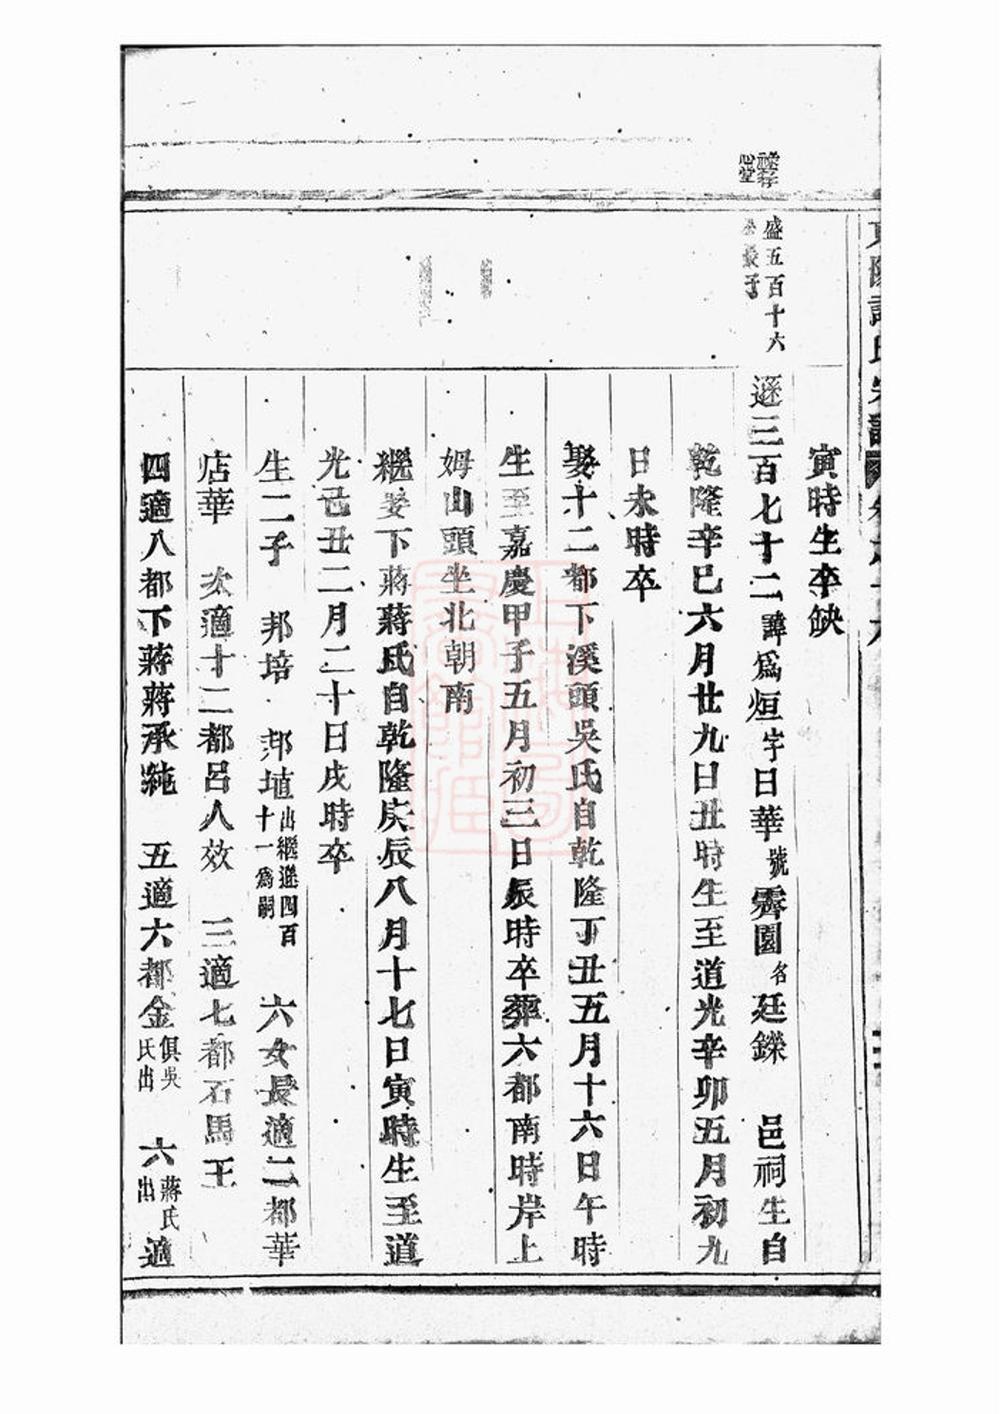 寅時生卒缺
盛五百十六
長子
遜三百七十二諱爲烜字日華號霽園名廷鑠 邑祠生自
乾隆辛巳六月廿九日丑時生至道光辛卯五月初九
日未時卒
娶十二都下溪頭吳氏自乾隆丁丑五月十六日午時
生至嘉慶甲子五月初三日辰時卒葬六都南時岸上
姆山頭坐北朝南
繼娶下蔣蔣氏自乾隆庚辰八月十七日寅時生至道
光己丑二月二十日戌時卒
生二子 邦培 邦埴出繼遜四百十一爲嗣 六女長適二都華
店華 次適十二都呂人效 三適七都石馬王
四適八都下蔣蔣承純 五適六都金俱吳氏出 六蔣氏出適